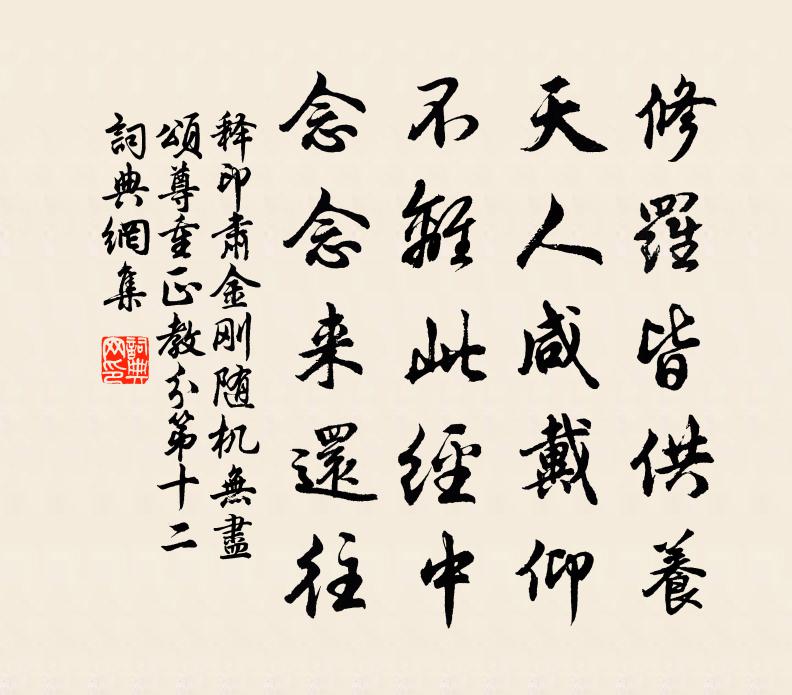 修羅皆供養
天人咸戴仰
不離此經中
念念来還往
释印肃金刚随机無盡
頌尊重正教分第十二
詞典網集
詞典
网印